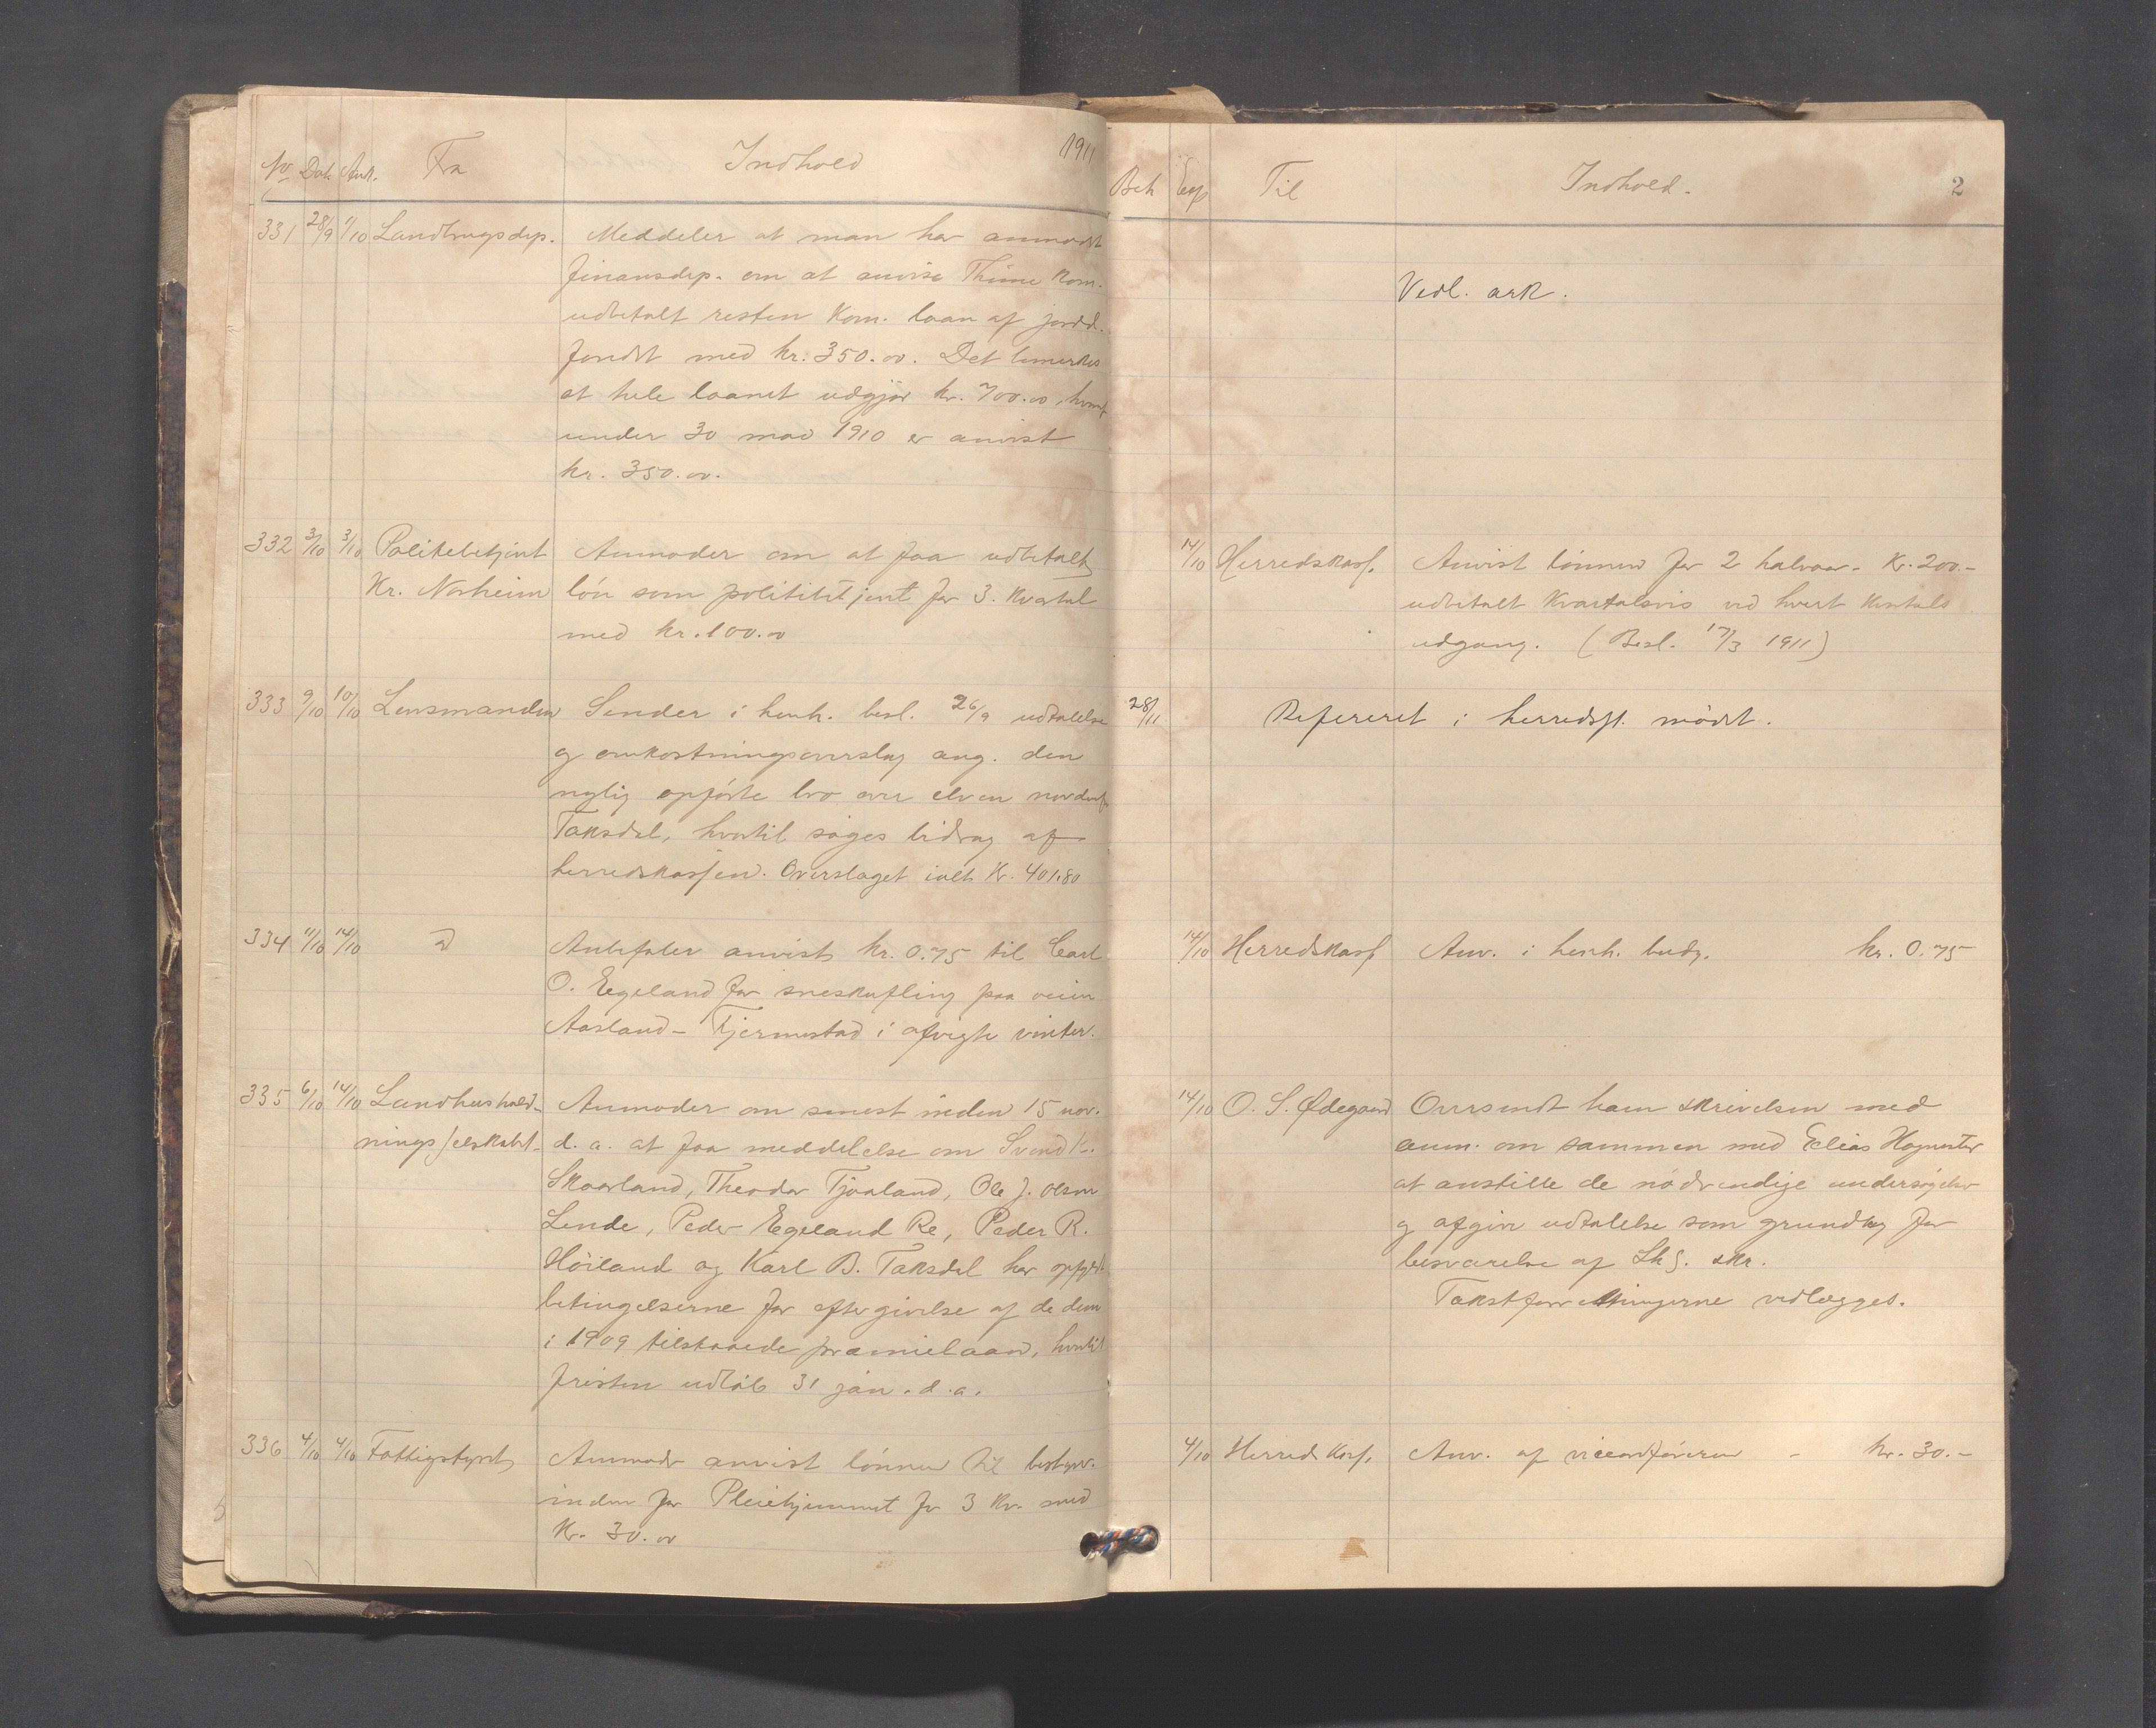 No Dat. Ank. Fra Indhold 1911
331 28/9 1/10 Landbrugsdep. Meddeler at man har anmodet
finansdep. om at anvise Thime kom.
udbetalt resten kom. laan af jordd.
fondet med kr. 350.00. Det bemerkes
at hele laanet udgjør kr. 700.00, hvoraf
under 30 mad 1910 er anvist
kr. 350.00.
332 3/10 3/10 Politibetjent Anmoder om at faa udbetalt
Kr. Norheim løn som politibetjent for 3. kvartal
med kr. 100.00
333 9/10 10/10 Lensmanden Sender i henh. besl. 26/9 udtalelse
og omkostningsoverslag ang. den
nylig opførte bro over elven nordenfor
Taksdal, hvortil søges bidrag af
herredskassen. Overslaget ialt Kr. 401.80
334 11/10 14/10 Anbefaler anvist kr. 0.75 til Carl
O. Egeland for sneskufling paa veien
Aasland - Tjermestad i afvigte vinter.
335 6/10 14/10 Landhushold- Anmoder om senest inden 15 nov.
ningsselskabet. d. a. at faa meddelelse om Svend K.
Skaarland, Theodor Tjaaland, Ole J. Olsen
Lende, Peder Egeland Re, Peder R.
Høiland og Karl B. Taksdal har opfyldt
betingelserne for eftergivelse af de dem
i 1909 tilstaaede præmielaan, hvortil
fristen udløb 31 jan. d. a.
336 4/10 4/10 Fattigstyret Anmoder anvist lønnen til bestyr.
inden for Pleiehjemmet for 3 kv. med
Kr. 30.00
Beh Exp Til Indhold. 2
Vedl. ark.
14/10 Herredskass. Anvist lønnen for 2 halvaar - Kr. 200.-
udbetalt kvartalsvis ved hvert kvartals
udgang. (Besl. 17/3 1911)
28/11 Refereret i herredsst. mødet.
14/10 Herredskass Anv. i henh. budg. kr. 0.75
14/10 O. S. Ødegaard Oversendt ham skrivelsen med
anm. om sammen med Elias Hognestad
at anstille de nødvendige undersøgelser
og afgive udtalelse som grundlag for
besvarelse af Lh S. skr.
Takstforretningerne vedlægges.
4/10 Herredskass. Anv. af viceordføreren - kr. 30.-